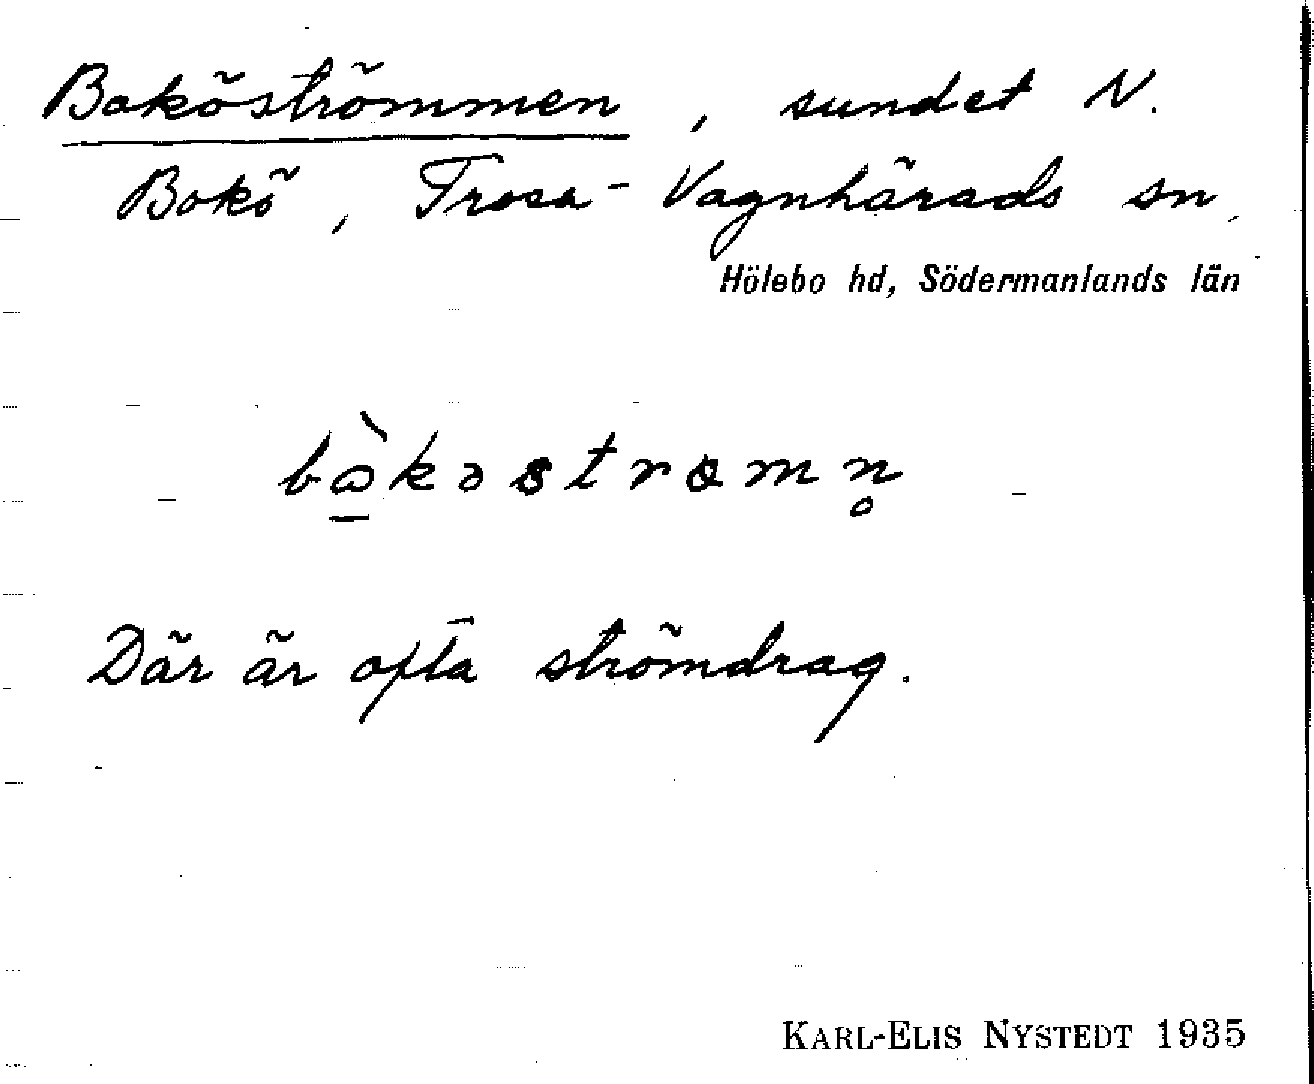 Boköströmmen, sundet N.
Bokö, Trosa-Vagnhärads sn,
Hölebo hd, Södermanlands län
Där är ofta strömdrag.
KARL-ELIS NYSTEDT 1935